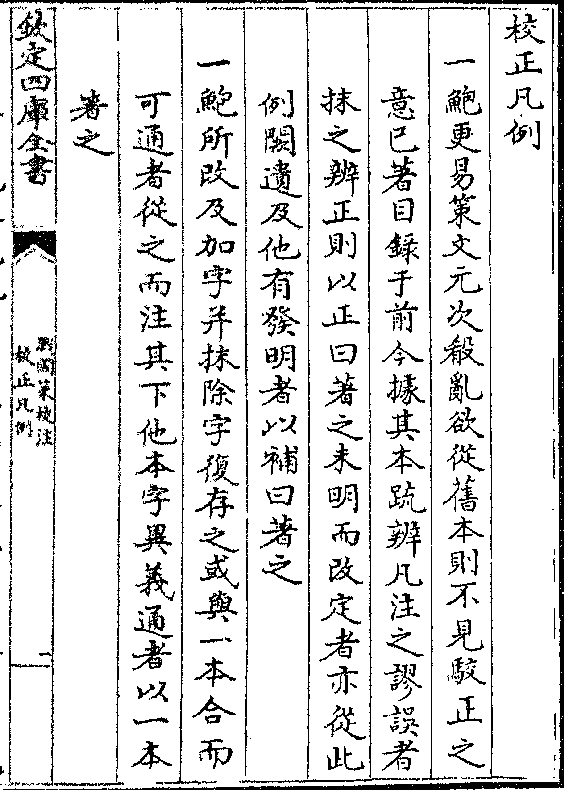 校正凡例
一鮑更易策文元次殽亂欲從舊本則不見駮正之
意已著目錄于前今據其本䟽辨凡注之謬誤者
抹之辨正則以正曰著之未明而改定者亦從此
例闕遺及他有發明者以補曰著之
一鮑所改及加字并抹除字復存之或與一本合而
可通者從之而注其下他本字異義通者以一本
著之
欽定四庫全書
戰國策校注
校正凡例
一